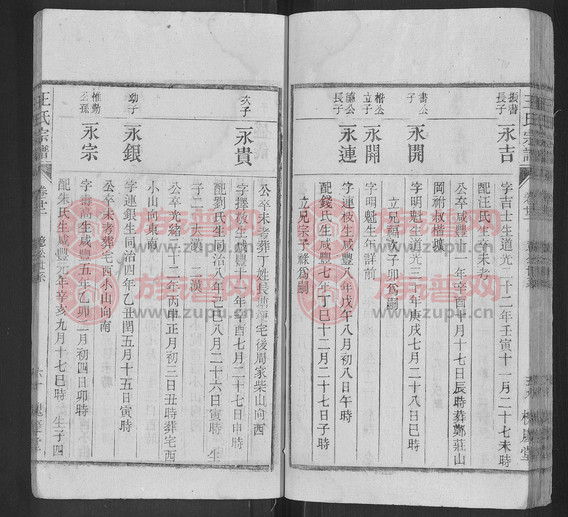 王氏宗譜
振書
長子
永吉
字吉士生道光二十二年壬寅十一月二十七未時
配汪氏生卒未考
公卒咸豐 年辛酉十月十七日辰時葬鄭莊山
岡祔叔楷墳
書公
子
永開
字明魁生道光三十年庚戌七月二十八日巳時
立兄福次子卯爲嗣
楷公
立子
永開
字明魁生年詳前
德公
長子
永連
字連枝生咸豐八年戊午八月初八日午時
配錢氏生咸豐七年丁巳十二月二十七日子時
立兄宗子祿爲嗣
次子
永貴
公卒未考葬丁姓長 宅後周家柴山向西
字擇 生咸豐十一年辛酉七月二十七日申時
配劉氏生同治八年己巳八月二十六日寅時 生
子二大漢 二漢
公卒光緒二十二年丙申正月初三日丑時葬宅西
小山向南
幼子
永銀
字連銀生同治四年乙丑閏五月十五日寅時
公卒未考葬宅西小山向南
惟勤
公孫
永宗
字壽高生咸豐五年乙卯二月初四日卯時
配朱氏生咸豐元年辛亥九月十七巳時 生子四
王氏宗譜
卷廿二
六十
族谱网
www.zupu.cn
族谱网
www.zupu.cn